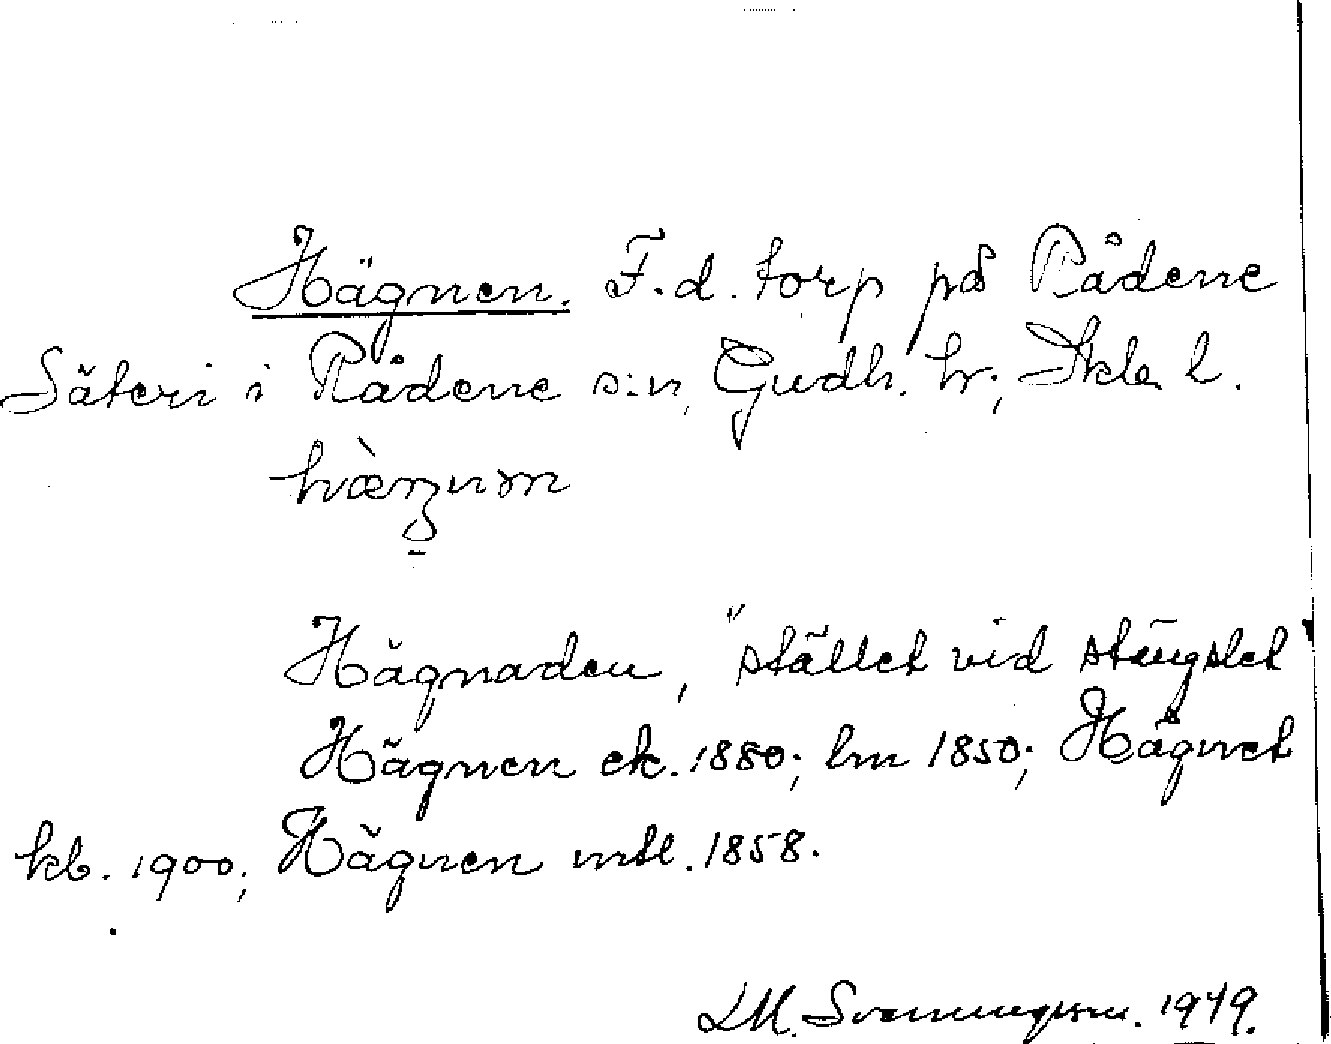 Hägnen. F.d. torp på Rådene
Säteri i Rådene s:n, Gudh. hr; Skbl. l.
Hägnaden, "stället vid stängslet
Hägnen ek. 1880; lm 1850; Hägnet
kb. 1900; Hägnen mtl. 1858.
LM. Svenungsson. 1949.